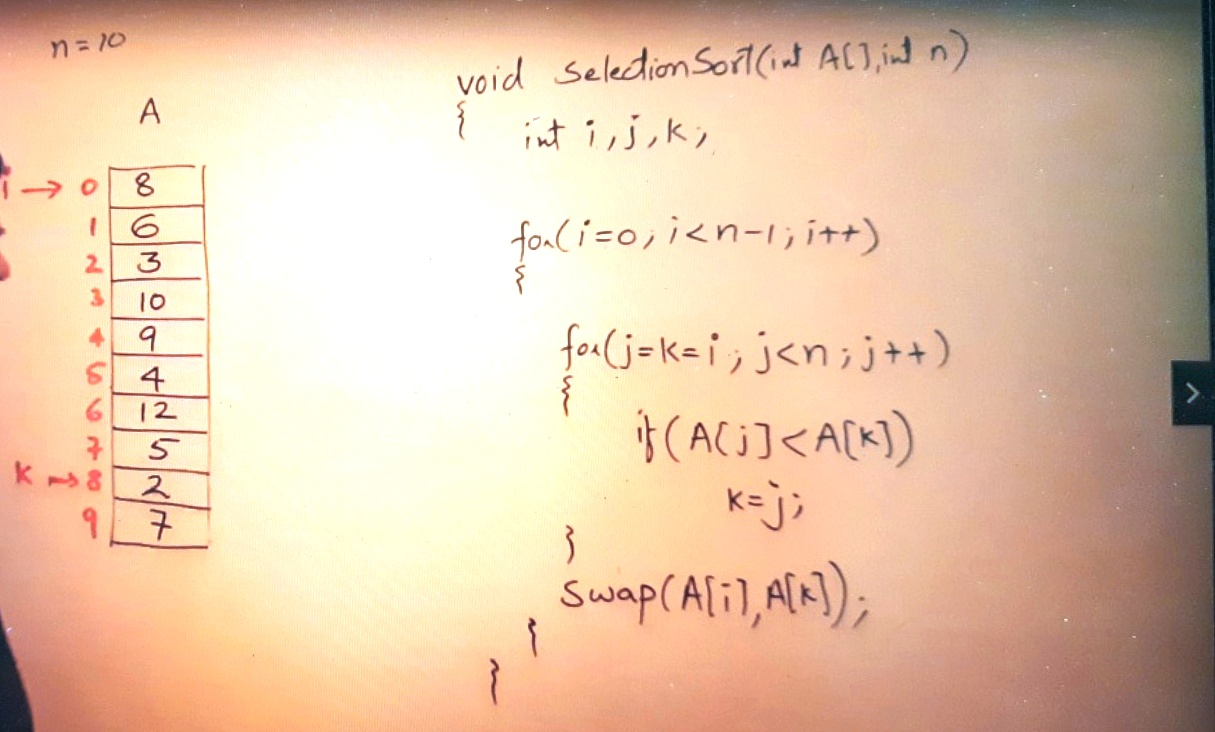 n=10
A
i → 0 8
1 6
2 3
3 10
4 9
5 4
6 12
7 5
k → 8 2
9 7
void SelectionSort(int A[],int n)
{
int i,j,k;
for(i=0;i<n-1;i++)
{
for(j=k=i;j<n;j++)
{
if(A[j]<A[k])
k=j;
}
Swap(A[i],A[k]);
}
}
>